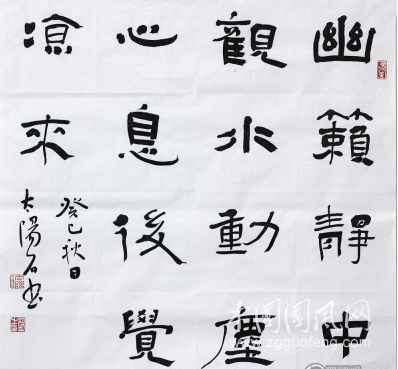 幽籟靜中
觀水動塵
心息後覺
凉來
癸巳秋日
太陽石书
中国国风网
www.zgguofeng.com